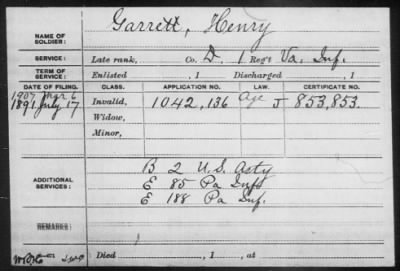 NAME OF SOLDIER: Garrett, Henry
SERVICE: Late rank, Co. D. 1 Reg't Va. Inf.
TERM OF SERVICE: Enlisted , 1 Discharged , 1
DATE OF FILING. CLASS. APPLICATION NO. LAW. CERTIFICATE NO.
1907 Mar 6
1891 July 17 Invalid, 1042,136 Age J 853,853.
Widow,
Minor,
B 2 U.S. Arty
ADDITIONAL SERVICES: E 85 Pa Inf
E 188 Pa Inf.
REMARKS:
Died , 1 , at